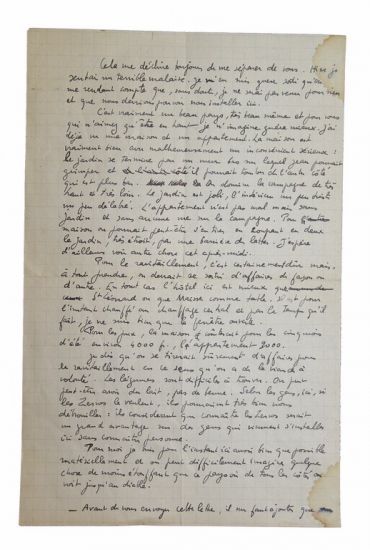 Cela me déchire toujours de me séparer de vous. Hier je
sentais un terrible malaise. Je m'en suis guère sorti qu'en
me rendant compte que, sans doute, je ne serai pas venu pour rien
et que nous devrions pouvoir nous installer ici.
C'est vraiment un beau pays, très beau même et pour vous
qui n'aimez qu'être en haut je n'imagine guère mieux. J'ai
déjà vu une maison et un appartement. La maison est
vraiment bien avec malheureusement un inconvénient sérieux :
le jardin se termine par un mur sur lequel Jean pourrait
grimper et il pourrait tomber de l'autre côté
qui est plus bas. On domine la campagne de très
haut et très loin. Le jardin est joli, l'intérieur un peu
un peu délabré. L'appartement n'est pas mal mais sans
jardin et sans aucune vue sur la campagne. Pour
maison on pourrait peut-être s'en tirer en coupant en deux
le jardin, très étroit, par une barrière de lattes. J'espère
d'ailleurs voir autre chose cet après-midi.
Pour le ravitaillement, c'est certainement dur mais,
à tout prendre, on devrait se sortir d'affaires de façon ou
d'autre. En tout cas l'hôtel ici est mieux que
St Léonard ou que Meisse comme table. Il est pour
l'instant chauffé au chauffage central et par le temps qu'il
fait, je ne suis bien que la fenêtre ouverte.
(Pour les prix, la maison coûterait pour les cinq mois
d'été environ 4000 f., l'appartement 2000.
Je dis qu'on se tirerait sûrement d'affaires pour
le ravitaillement en ce sens qu'on a de la viande à
volonté. Les légumes sont difficiles à trouver. On peut
peut-être avoir du lait, pas de beurre. Selon les gens, ici, si
les Zervos le veulent, ils pourraient très bien nous
débrouiller : ils considèrent que connaître les Zervos serait
un grand avantage sur des gens qui viennent s'installer
ici sans connaître personne.
Pour moi je suis pour l'instant ici aussi bien que possible
matériellement et on peut difficilement imaginer quelque
chose de moins étouffant que ce paysage de tous les côtés on
voit jusqu'au diable.
— Avant de vous envoyer cette lettre, il me faut ajouter que